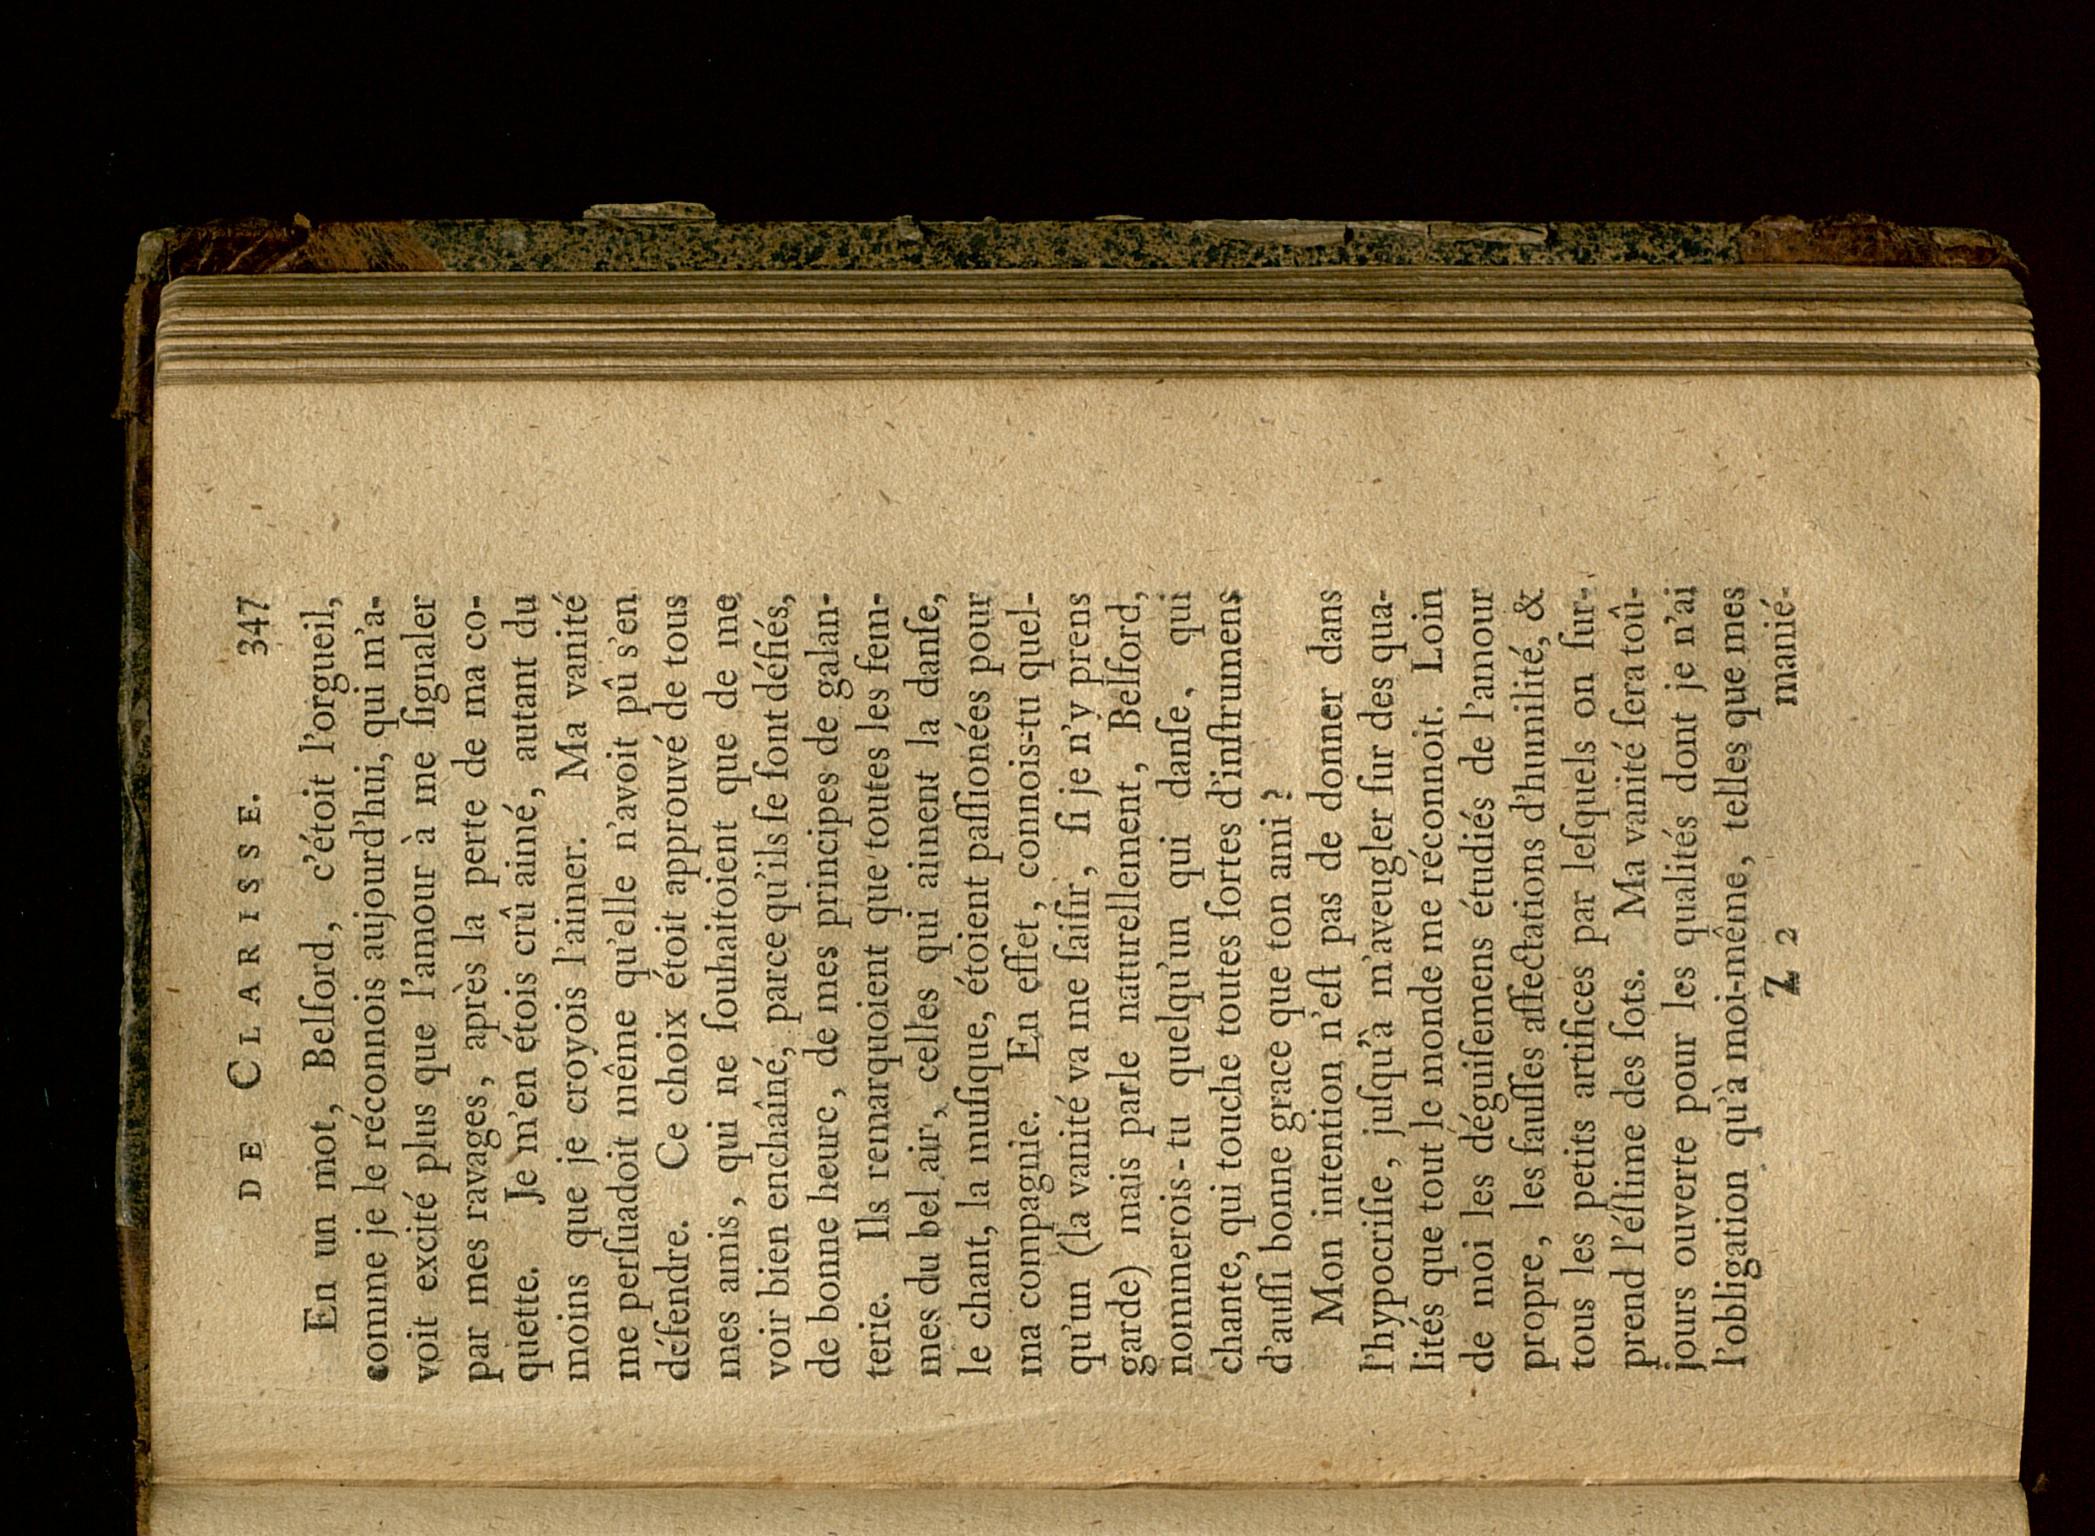 DE CLARISSE. 347
En un mot, Belford, c'étoit l'orgueil,
comme je le réconnois aujourd'hui, qui m'a-
voit excité plus que l'amour à me ſignaler
par mes ravages, après la perte de ma co-
quette. Je m'en étois crû aimé, autant du
moins que je croyois l'aimer. Ma vanité
me perſuadoit même qu'elle n'avoit pû s'en
défendre. Ce choix étoit approuvé de tous
mes amis, qui ne ſouhaitoient que de me
voir bien enchaîné, parce qu'ils ſe ſont défiés,
de bonne heure, de mes principes de galan-
terie. Ils remarquoient que toutes les fem-
mes du bel air, celles qui aiment la danſe,
le chant, la muſique, étoient paſſionées pour
ma compagnie. En effet, connois-tu quel-
qu'un (la vanité va me ſaiſir, ſi je n'y prens
garde) mais parle naturellement, Belford,
nommerois-tu quelqu'un qui danſe, qui
chante, qui touche toutes ſortes d'inſtrumens
d'auſſi bonne grace que ton ami?
Mon intention n'eſt pas de donner dans
l'hypocriſie, juſqu'à m'aveugler ſur des qua-
lités que tout le monde me réconnoit. Loin
de moi les déguiſemens étudiés de l'amour
propre, les fauſſes affectations d'humilité, &
tous les petits artifices par leſquels on ſur-
prend l'éſtime des ſots. Ma vanité ſera toû-
jours ouverte pour les qualités dont je n'ai
l'obligation qu'à moi-même, telles que mes
Z 2 manié-